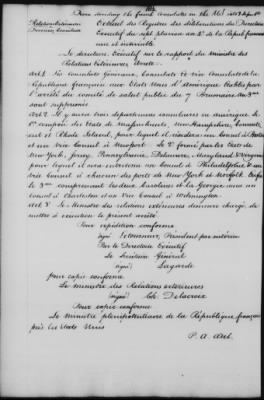 Extrait des Registres des déliberations du Directoire
Exécutif du sept pluviose an 4e de la République française
une et indivisible
Le directoire Exécutif sur le rapport du ministre des
Relations Extérieures Arrete
Art. 1 Les Consulats Généraux, Consulats et vice Consulats de la
République française aux Etats Unis d'Amérique établis par
l'arrêté du comité de salut public du 7 Brumaire an 3me
sont supprimés
Art. 2 Il y aura trois départemens consulaires en Amérique le
1er composé des Etats de Massachusetts, New Hampshire, Connecticut
et Rhode Island, pour lequel il y aura un Consul à Boston
et un vice Consul à Newport. Le 2e formé par les Etats de
New York, Jersey, Pennsylvania, Delaware, Maryland & Virginia
pour lequel il sera entretenu un Consul à Philadelphie & un
vice Consul à chacun des ports de New York & Norfolk Enfin
le 3me comprenant les deux Carolines et la Georgie avec un
Consul à Charleston et un Vice Consul à Wilmington
Art. 3 Le Ministre des relations extérieures demeure chargé de
mettre à exécution le présent arrêté.
Pour expédition conforme
signé Letourneur, President par intérim
Par le Directoire Exécutif
Le Secrétaire Général
signé Lagarde
pour copie conforme
Le ministre des Relations extérieures
signé Ch. Delacroix
Pour copie conforme
Le Ministre plenipotentiaire de la République française
près les Etats Unis
P. A. Adet